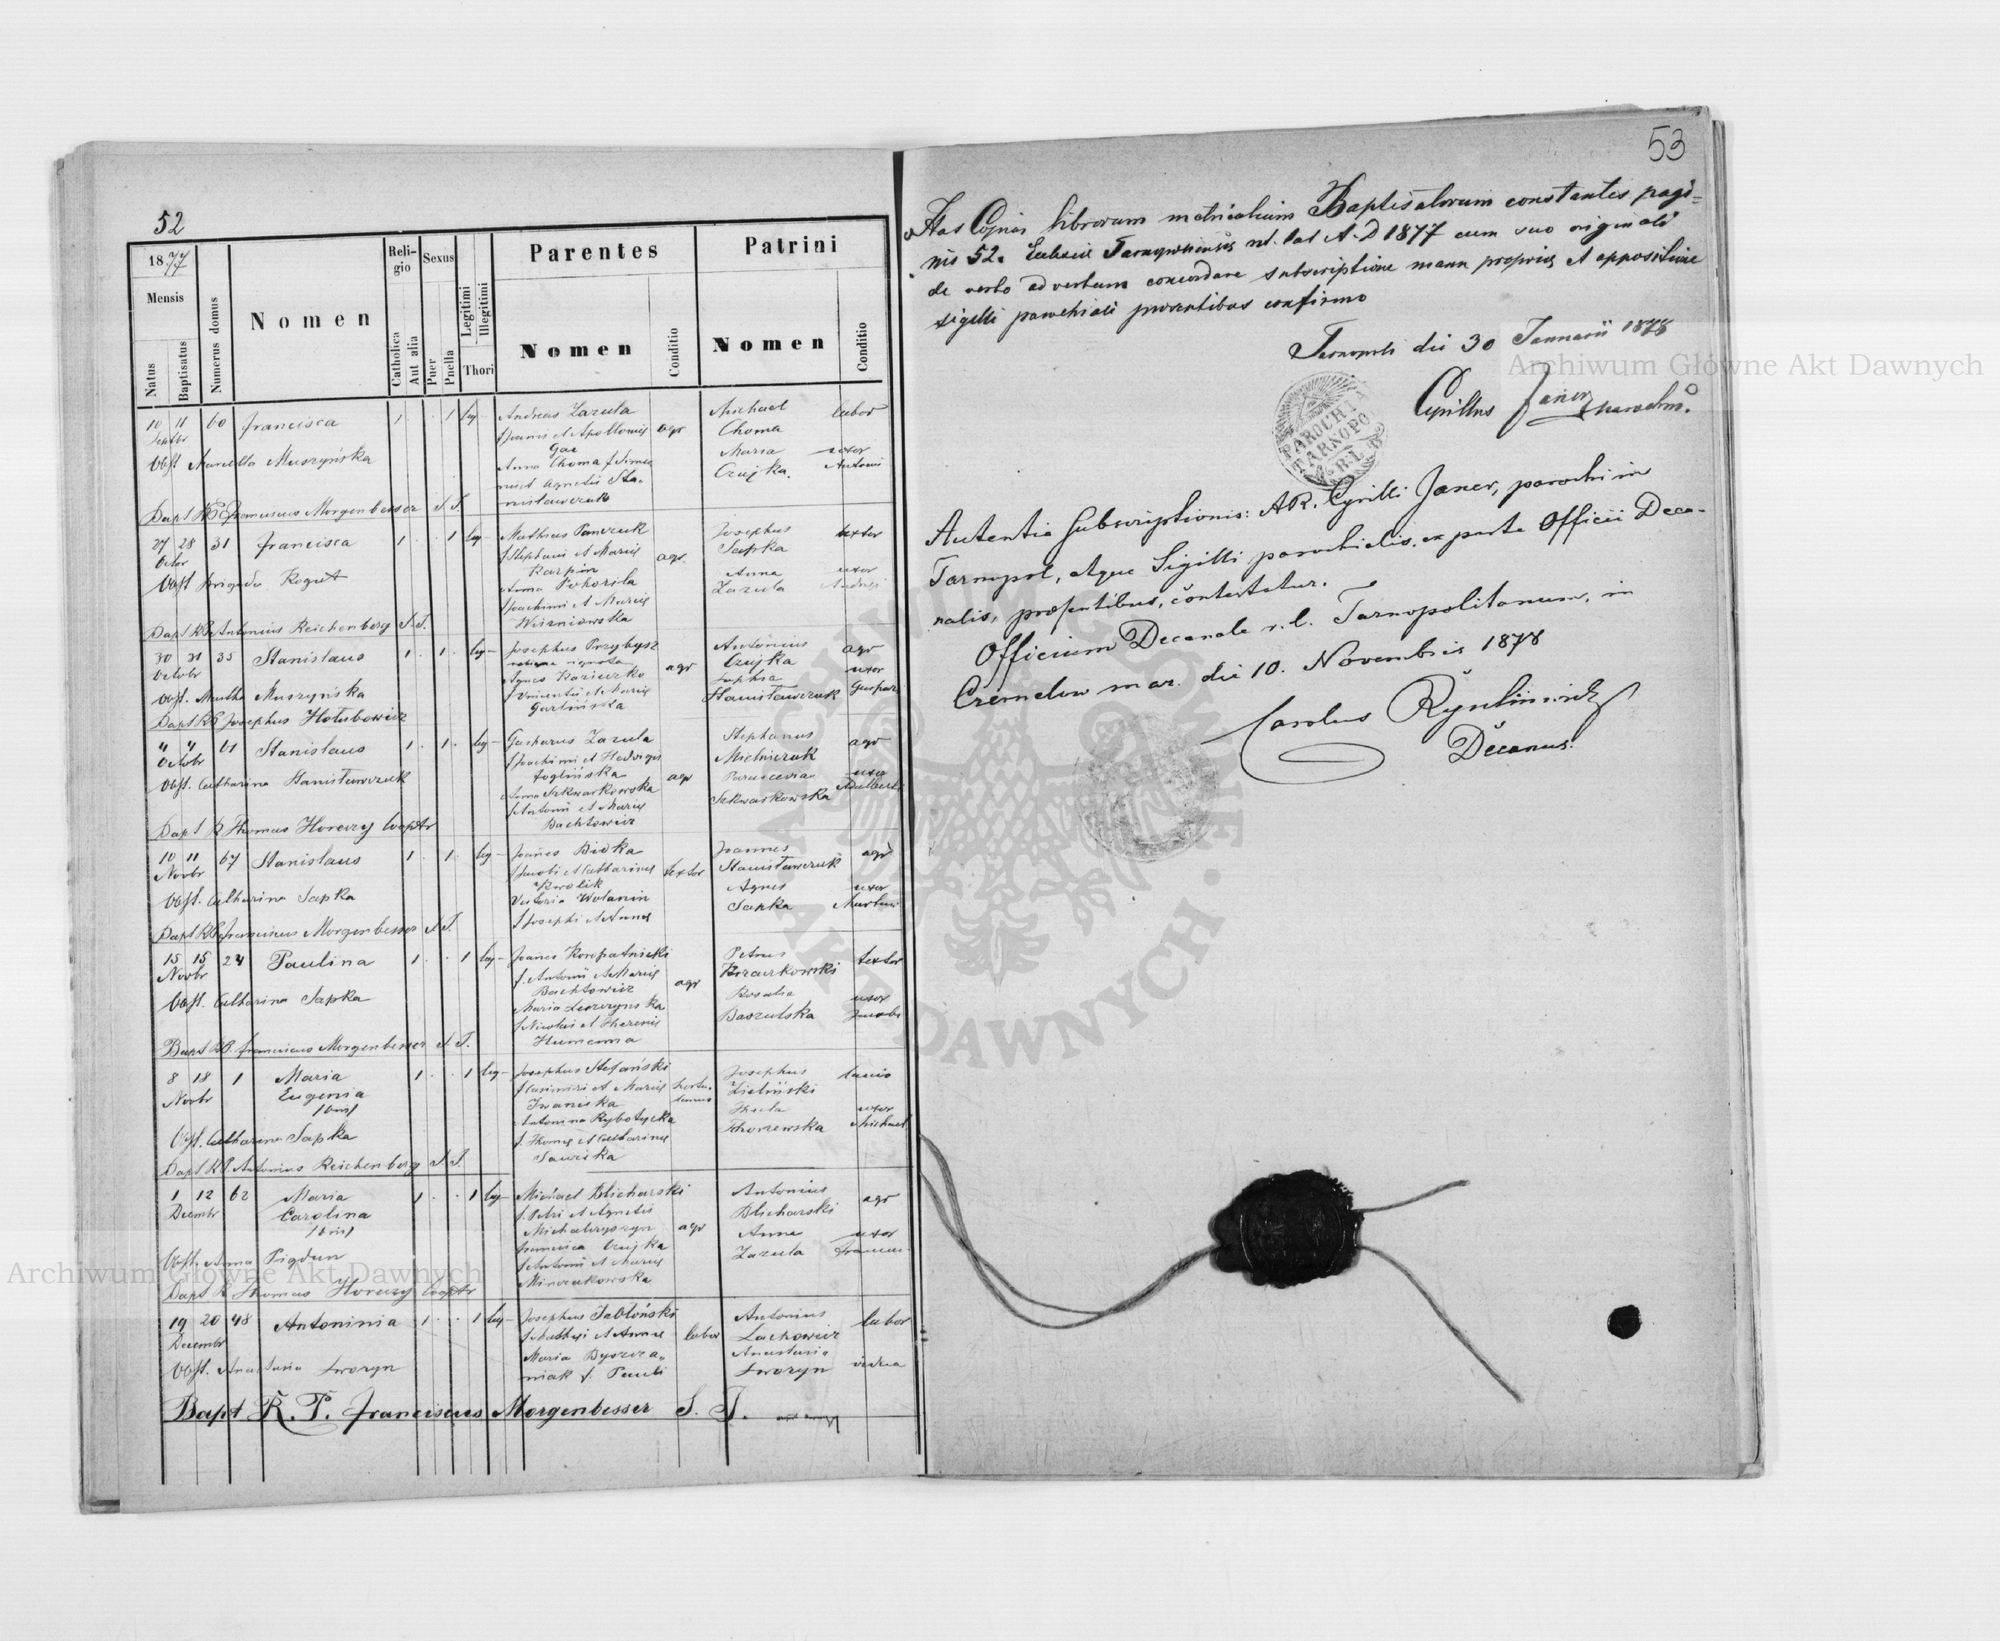 52
1877
Mensis
Natus
Baptisatus
Numerus domus
Nomen
Religio
Catholica
Aut alia
Sexus
Puer
Puella
Legitimi
Illegitimi
Thori
Parentes
Nomen
Conditio
Patrini
Nomen
Conditio
10 11 60 Francisca 1 . . 1 leg- Andreas Zazula agr Michael labor
Septbr Choma
Obst Marcella Muszyńska Maria uxor
Anna Choma Czujka Antonii
Bapt RP Franciscus Morgenbesser S. J.
27 28 31 Francisca 1 . . 1 leg- Mathias Panczuk agr Josephus textor
Octor f Stephani et Mariæ Sapka
Karpin Anna uxor
Obst Brigida Kogut Anna Pohorila Zazula Andreæ
f Joachimi et Mariæ
Wiśniowska
Bapt RP Antonius Reichenberg S. J.
30 31 35 Stanislaus 1 . 1 . leg- Josephus Przybysz agr Antonius agr
Octobr Czujka
Agnes Koziczko Sophia uxor
Obst. Martha Muszyńska f Vincentii et Mariæ Stanisławczuk Gaspari
Bapt RP Josephus Hołubowicz
4 4 61 Stanislaus 1 . 1 . leg- Gasparus Zazula agr Stephanus agr
Octobr f Joachimi et Hedvigis Mielniczuk
Parascevia uxor
Obst. Catharina Stanisławczuk Anna Szkwarkowska Szkwarkowska Adalberti
f Antonii et Mariæ
Bachtowicz
Bapt R Thomas Horeczy Cooptr
10 11 67 Stanislaus 1 . 1 . leg- Joanes Bidka textor Joannes agr
Novbr f Jacobi et Catharinæ Stanisławczuk
Kwolik Agnes uxor
Obst. Catharina Sapka Victoria Wolanin Sapka Martini
f Josephi et Annæ
Bapt RP Franciscus Morgenbesser S. J.
15 15 24 Paulina 1 . . 1 leg- Joanes Kropatnicki agr Petrus textor
Novbr f. Antonii et Mariæ Kraczkowski
Bachtowicz Rosalia uxor
Obst. Catharina Sapka Maria Leszczyńska Baszulska Jacobi
f Nicolai et Theresiæ
Humenna
Bapt RP. Franciscus Morgenbesser S. J.
8 18 1 Maria 1 . . 1 leg- Josephus Stefański hortulanus Josephus lanio
Novbr Eugenia f Casimiri et Mariæ Zieliński
/bin/ Iwanicka Thecla uxor
Antonina Rybotycka Michael
Obst. Catharina Sapka f. Thomæ et Catharinæ
Sawicka
Bapt RP. Antonius Reichenberg S. J.
1 12 62 Maria 1 . . 1 leg- Michael Blicharski agr Antonius agr
Decembr Carolina f. Petri et Agnetis Blicharski
/bin/ Michalczyszyn Anna uxor
Obst. Anna Pigdun Francisca Czujka Zazula
f Antonii et Mariæ
Bapt R Thomas Horeczy Cooptr
19 20 48 Antoninia 1 . . 1 leg- Josephus Jabłoński labor Antonius labor
Decembr f Mathæi et Annæ Lachowicz
Obst. Anastasia Dworzyn Maria Anastasia
f. Pauli Dworzyn vidua
Bapt R. P. Franciscus Morgenbesser S. J.
53
Has Copias librorum metricalium Baptisatorum constantes pagi=
nis 52. Ecclesiæ Tarnopoliensis rit. lat A.D 1877 cum suo originali
de verbo ad verbum concordare subscriptione manu propria et appositione
sigilli parochiali præsentibus confirmo
Tarnopoli die 30 Januarii 1878
Cyrillus Janer parochus.
PAROCHIA
TARNOPOL
R. L.
Autentia subscriptionis: AR. Cyrilli Janer, parochi in
Tarnopol, atque Sigilli parochialis, ex parte Officii Deca-
nalis, præsentibus, contestatur.
Officium Decanale r. l. Tarnopolitanum, in
Czernelow maz. die 10. Novembris 1878
Carolus
Decanus.
Archiwum Główne Akt Dawnych
Archiwum Główne Akt Dawnych
ARCHIWUM GŁÓWNE AKT DAWNYCH